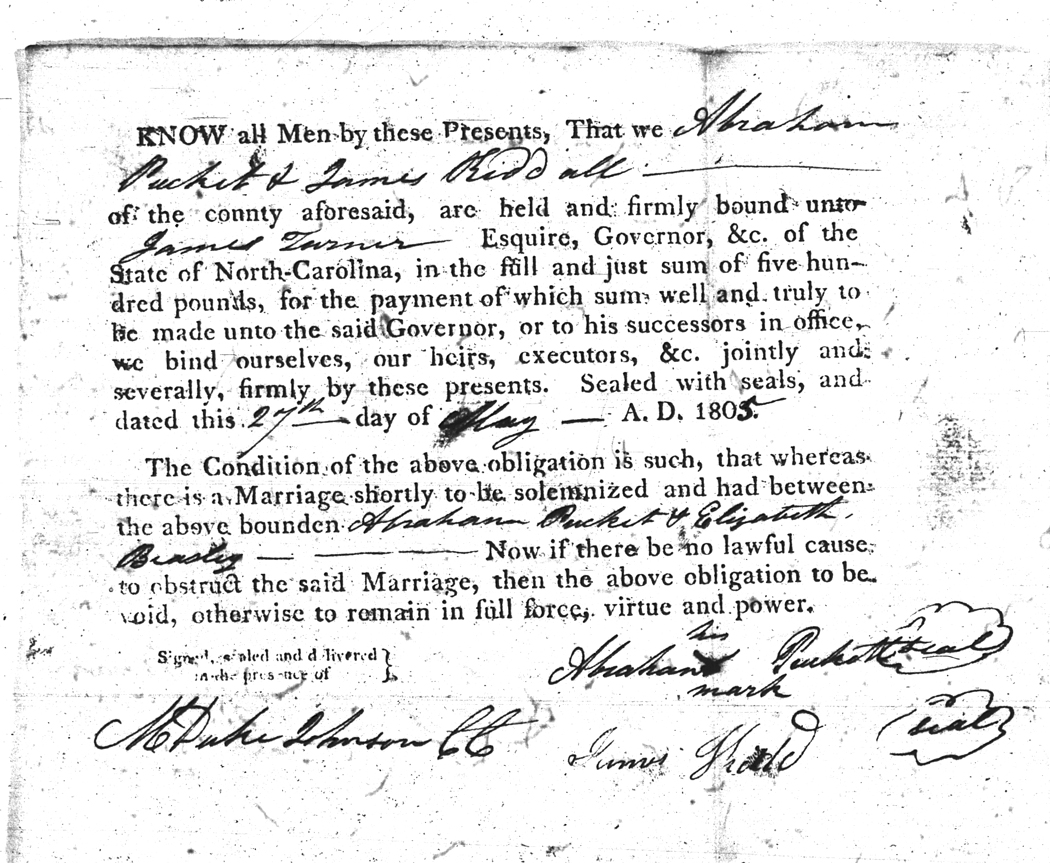 KNOW all Men by these Presents, That we Abraham
Pucket & James Kidd all
of the connty aforesaid, are held and firmly bound unto
James Turner Esquire, Governor, &c. of the
State of North-Carolina, in the full and just sum of five hun-
dred pounds, for the payment of which sum well and truly to
be made unto the said Governor, or to his successors in office,
we bind ourselves, our heirs, executors, &c. jointly and
severally, firmly by these presents. Sealed with seals, and
dated this 27th day of May A. D. 1805.
The Condition of the above obligation is such, that whereas
there is a Marriage shortly to be solemnized and had between
the above bounden Abraham Pucket & Elizabeth
Beasley Now if there be no lawful cause
to obstruct the said Marriage, then the above obligation to be
void, otherwise to remain in full force, virtue and power.
Signed, sealed and delivered
in the presence of
his
Abraham Puckett seal
mark
M Duke Johnson CC
James Kidd seal